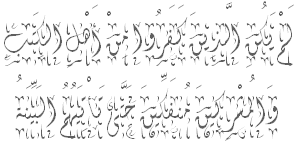 لَمْ يَكُنِ الَّذِينَ كَفَرُوا مِنْ أَهْلِ الْكِتَبِ
وَالْمُشْرِكِينَ مُنفَكِّينَ حَتَّى تَأْتِيَهُمُ الْبَيِّنَةُ